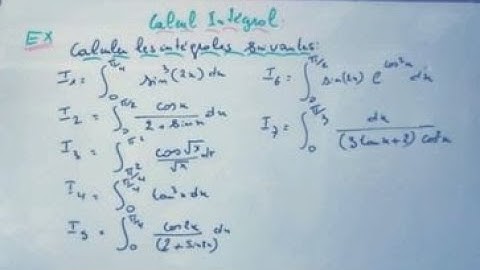 Calcul Intégral.
EX
Calculer les intégrales suivantes:
I₁ = ∫₀^{π/4} sin³(2x) dx
I₂ = ∫₀^{π/2} cosx / (2 + sinx) dx
I₃ = ∫ cos√x / √x dx
I₄ = ∫₀^{π/4} tan x dx
I₅ = ∫₀^{π/4} cos2x / (2 + sin2x) dx
I₆ = ∫₀^{π/2} sin(2x) e^{cos²x} dx
I₇ = ∫₀^{π/3} dx / ((3tanx + 2) cos²x)